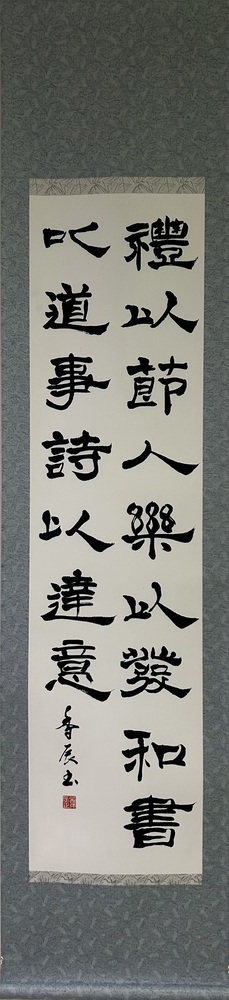 禮以節人樂以發和書
以道事詩以達意
季辰书